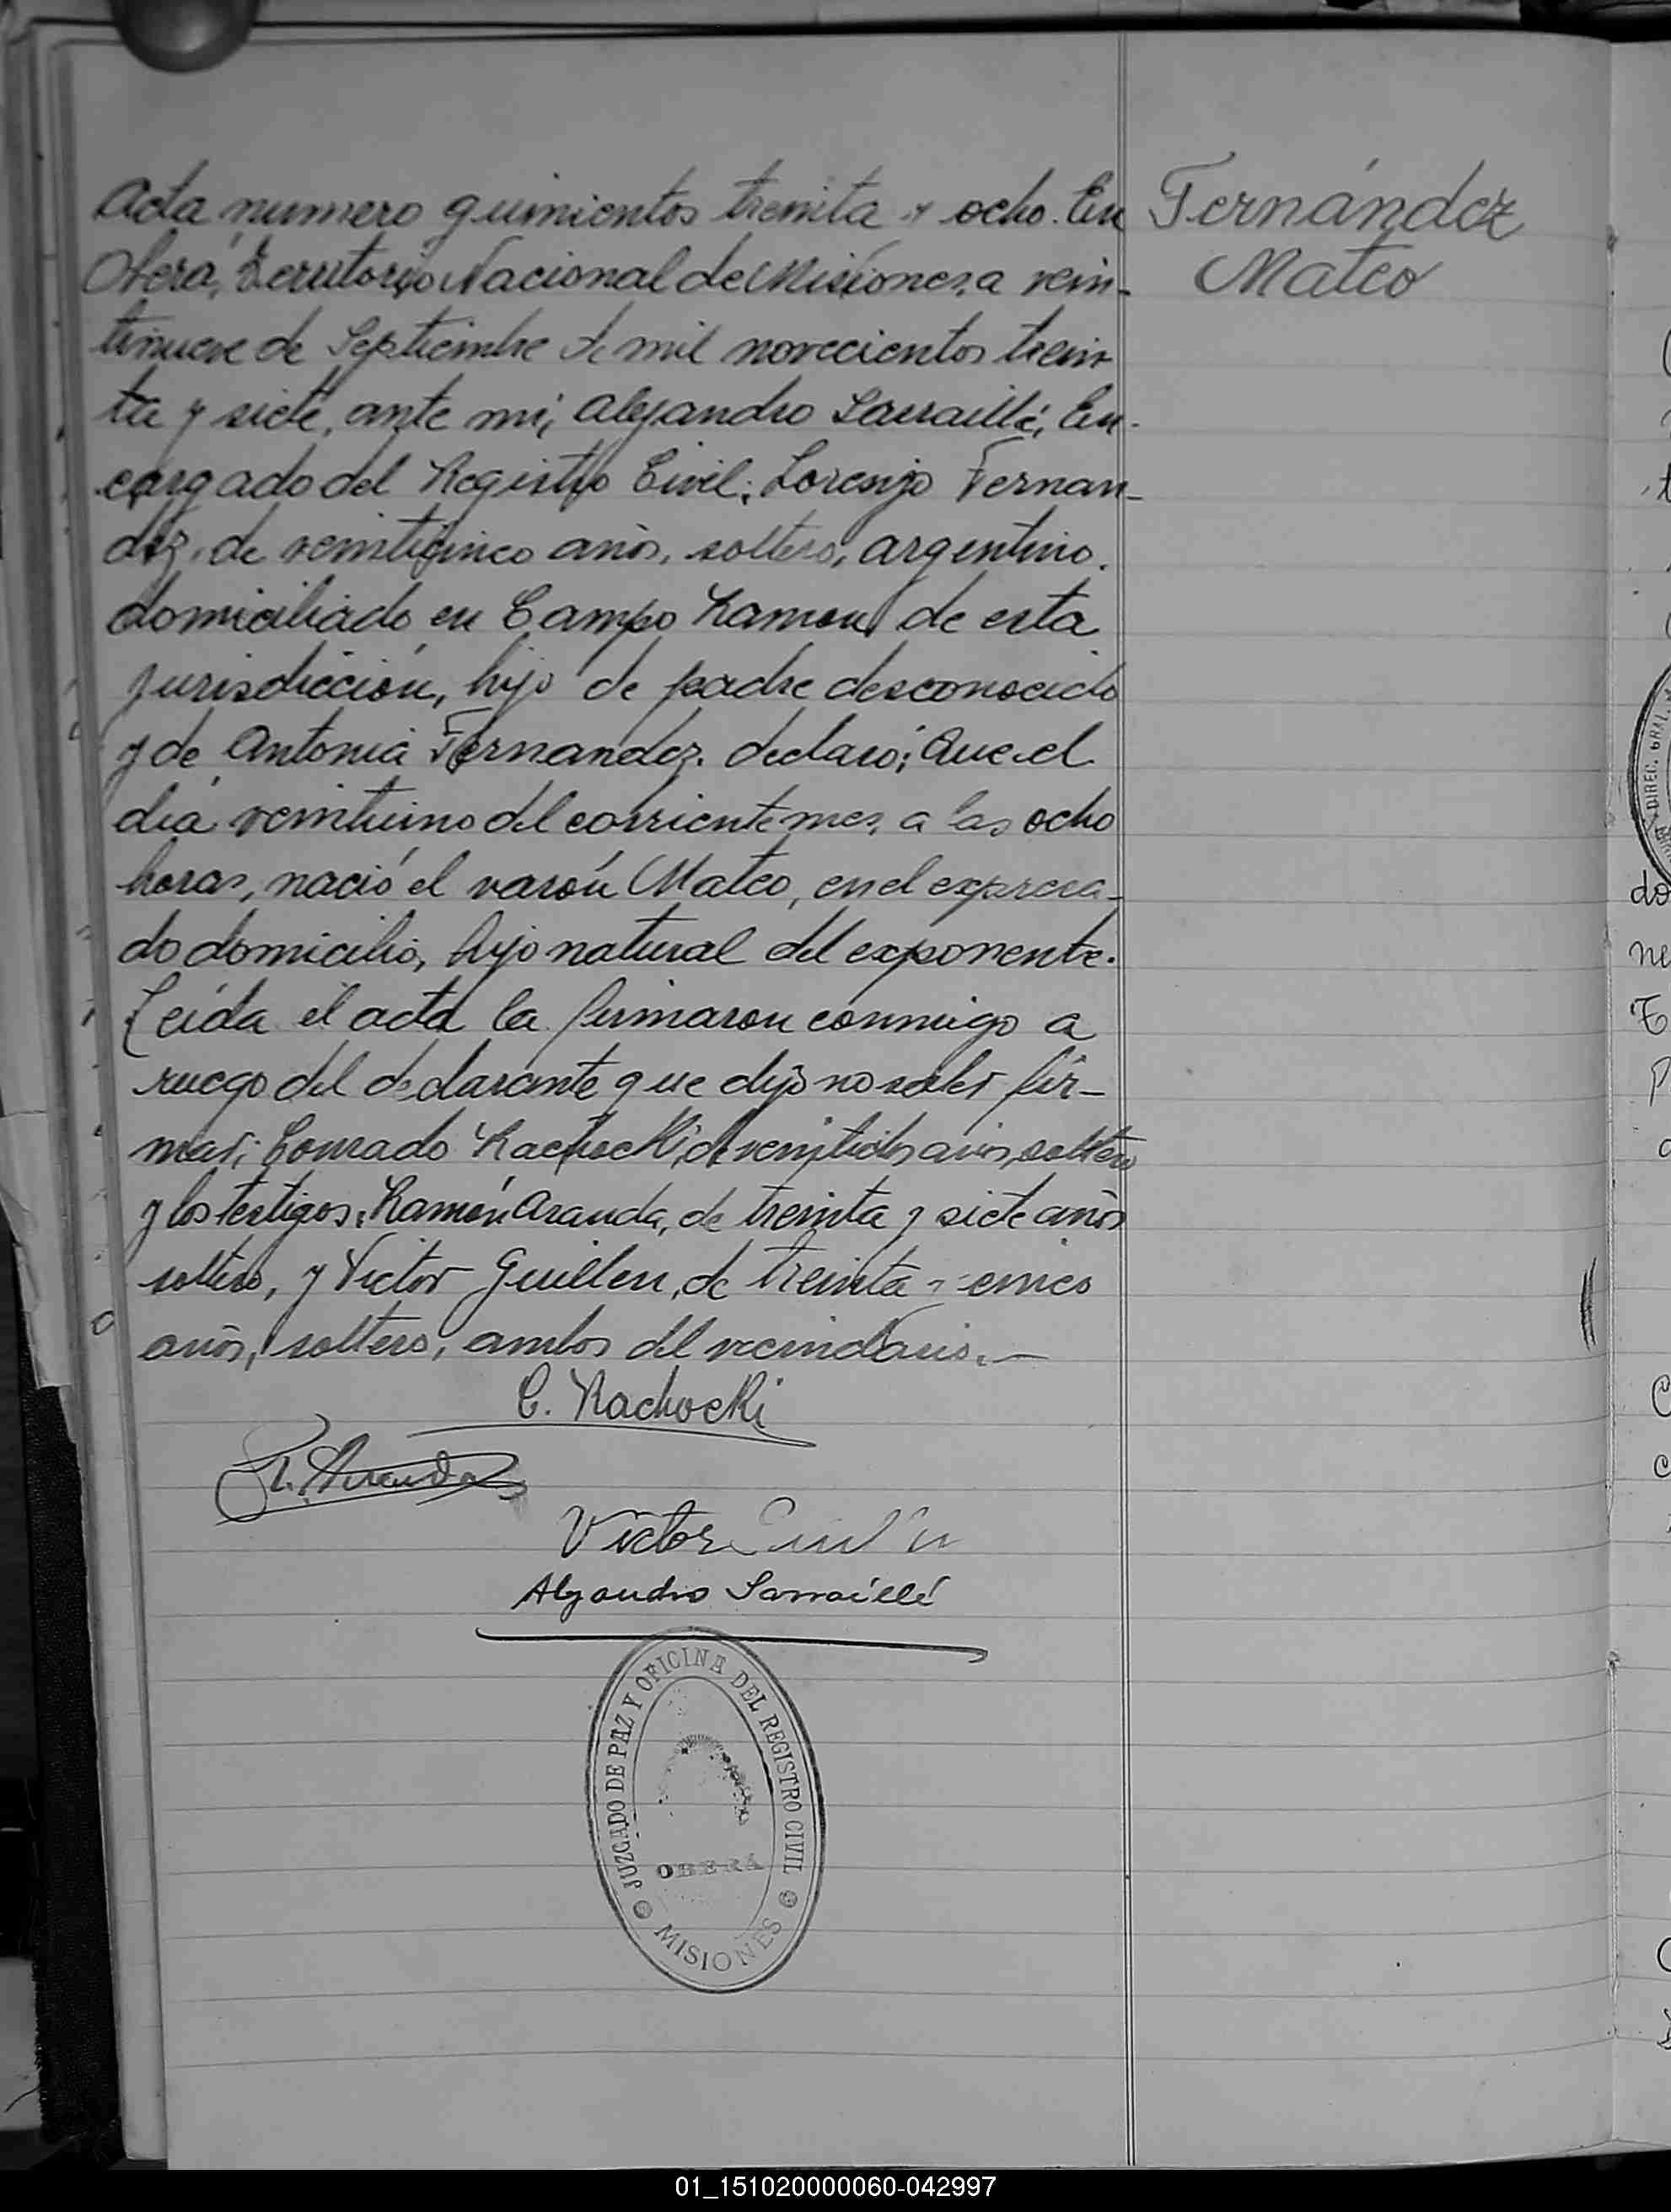 Acta numero quinientos treinta y ocho. En
Obera, Territorio Nacional de Misiones, a vein-
tinueve de Septiembre de mil novecientos trein-
ta y siete, ante mi, Alejandro Sarraillé, En-
cargado del Registro Civil; Lorenzo Fernan-
dez, de veinticinco años, soltero, argentino,
domiciliado en Campo Ramon, de esta
jurisdicción, hijo de padre desconocido
y de Antonia Fernandez. declaró; Que el
dia veintiuno del corriente mes, a las ocho
horas, nació el varón Mateo, en el expresa-
do domicilio, hijo natural del exponente.
Leída el acta la firmaron conmigo a
ruego del declarante que dijo no saber fir-
mar; Conrado Kachocki, de veintidos años, soltero
y los testigos, Ramón Aranda, de treinta y siete años
soltero, y Victor Guillen, de treinta y cinco
años, soltero, ambos del vecindario.—
Fernández
Mateo
C. Kachocki
R. Aranda
Victor
Alejandro Sarraillé
JUZGADO DE PAZ Y OFICINA DEL REGISTRO CIVIL
OBERÁ
MISIONES
DIREC. GRAL.
01_151020000060-042997